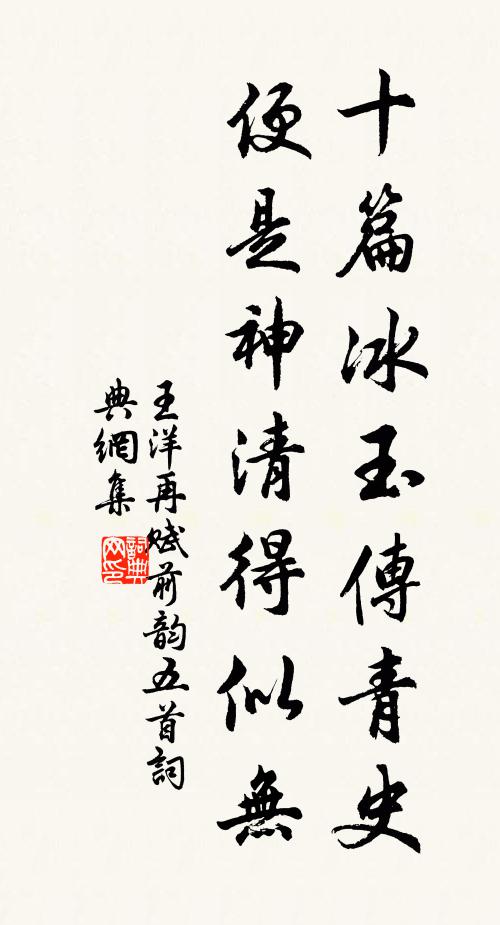 十篇冰玉傳青史
便是神清得似無
王洋再賦前韵五首詞
典網集
詞典網印